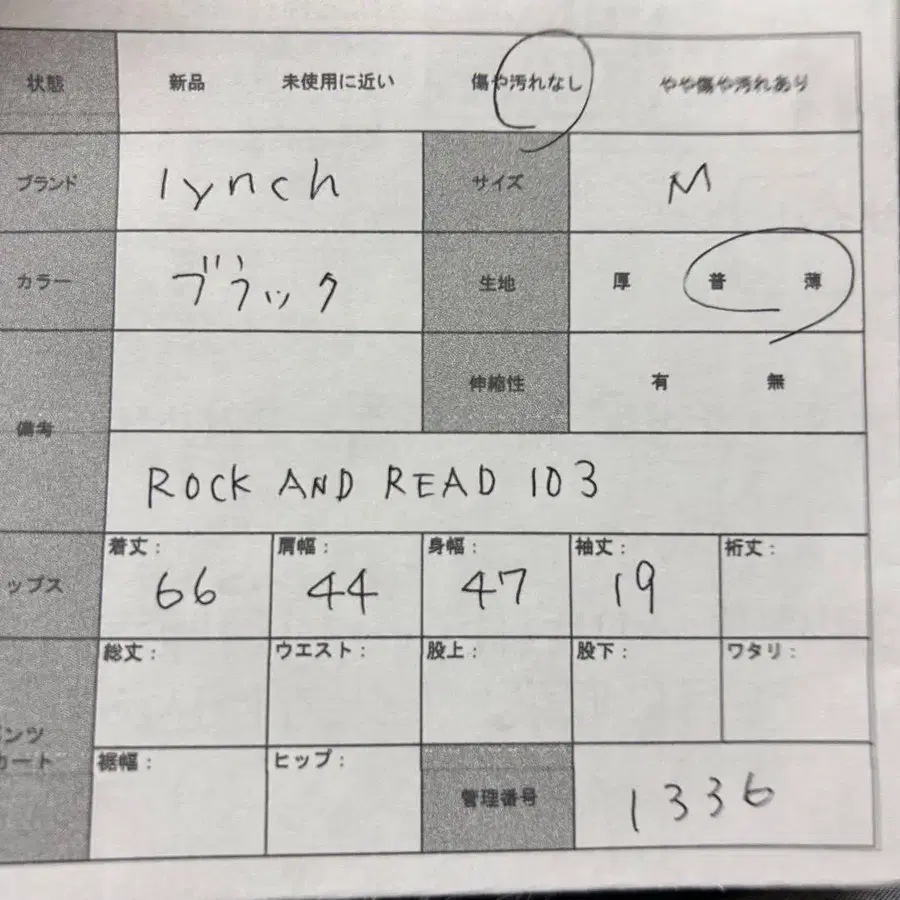 状態 新品 未使用に近い 傷や汚れなし やや傷や汚れあり
ブランド lynch サイズ M
カラー ブラック 生地 厚 普 薄
伸縮性 有 無
備考
ROCK AND READ 103
着丈: 肩幅: 身幅: 袖丈: 裄丈:
ップス 66 44 47 19
総丈: ウエスト: 股上: 股下: ワタリ:
ンツ
カート
裾幅: ヒップ:
管理番号 1336